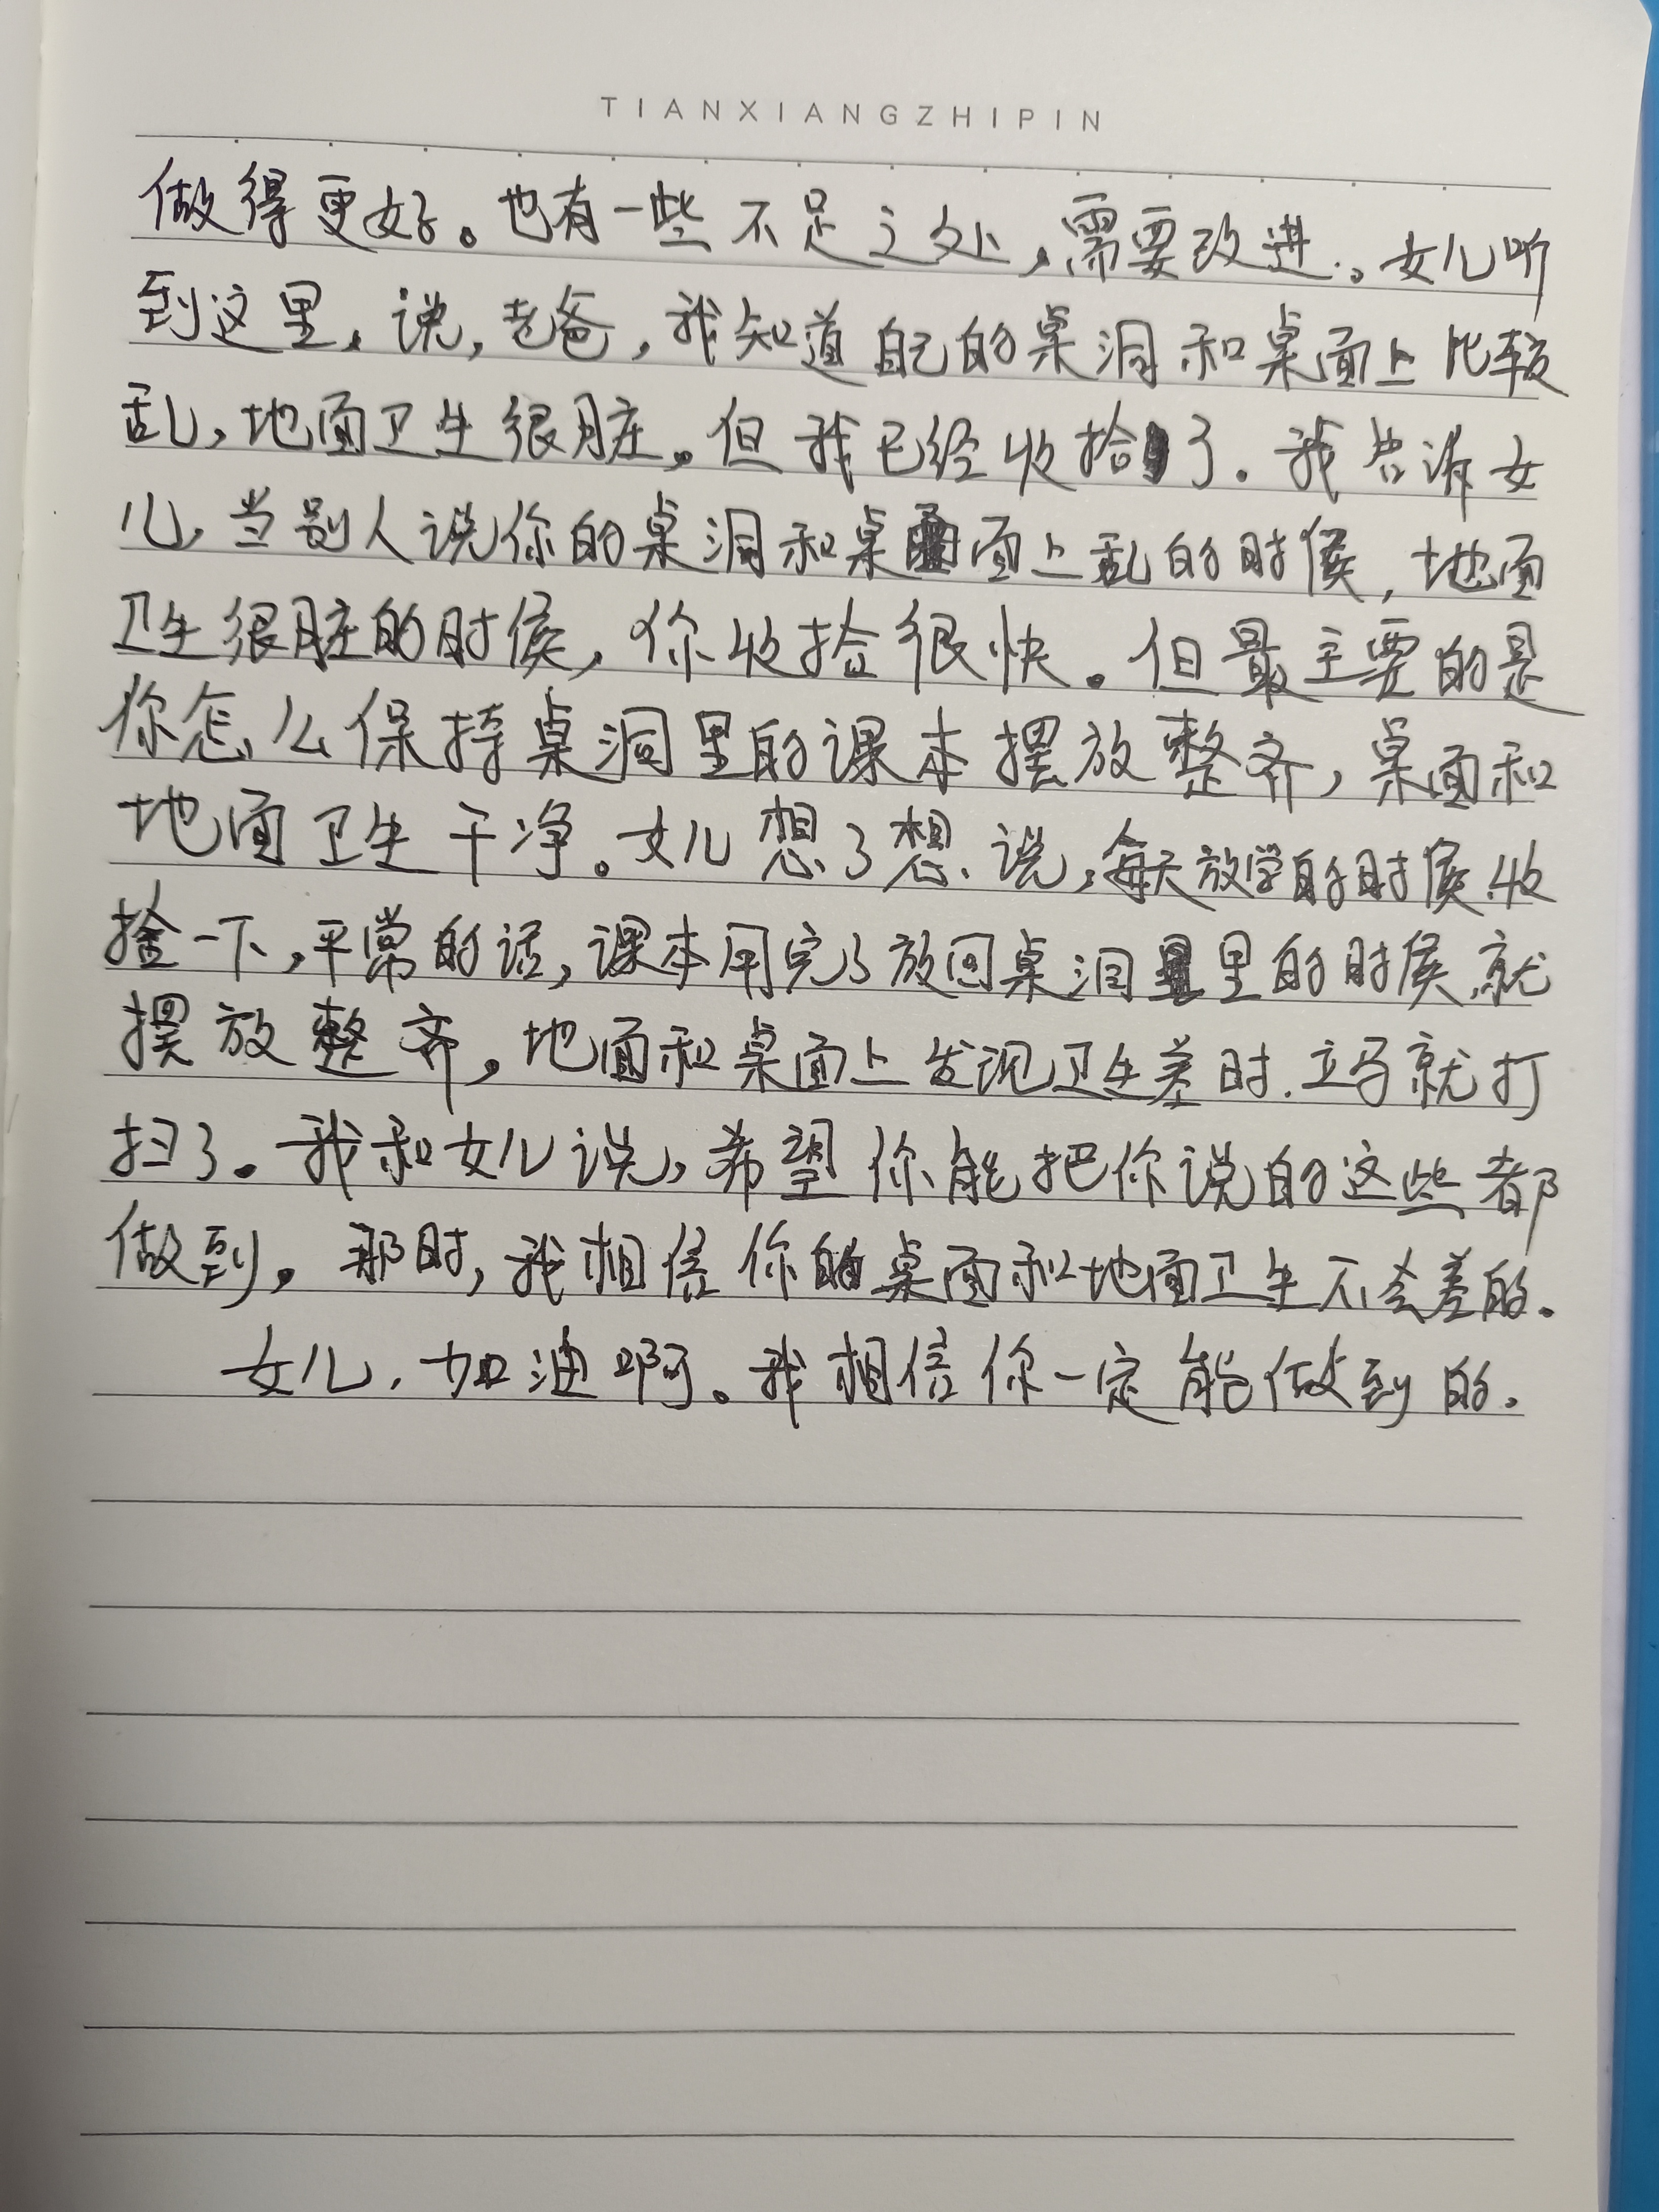 TIANXIANGZHIPIN
做得更好。也有一些不足之处,需要改进。女儿听
到这里,说,老爸,我知道自己的桌洞和桌面上比较
乱,地面卫生很脏。但我已经收拾了。我告诉女
儿,当别人说你的桌洞和桌面上乱的时候,地面
卫生很脏的时候,你收捡很快。但最主要的是
你怎么保持桌洞里的课本摆放整齐,桌面和
地面卫生干净。女儿想了想,说,每天放学的时候,收
捡一下,平常的话,课本用完了放回桌洞里的时候,就
摆放整齐。地面和桌面上发现卫生差时.立马就打
扫了。我和女儿说,希望你能把你说的这些都
做到。那时,我相信你的桌面和地面卫生不会差的。
女儿,加油啊。我相信你一定能做到的。